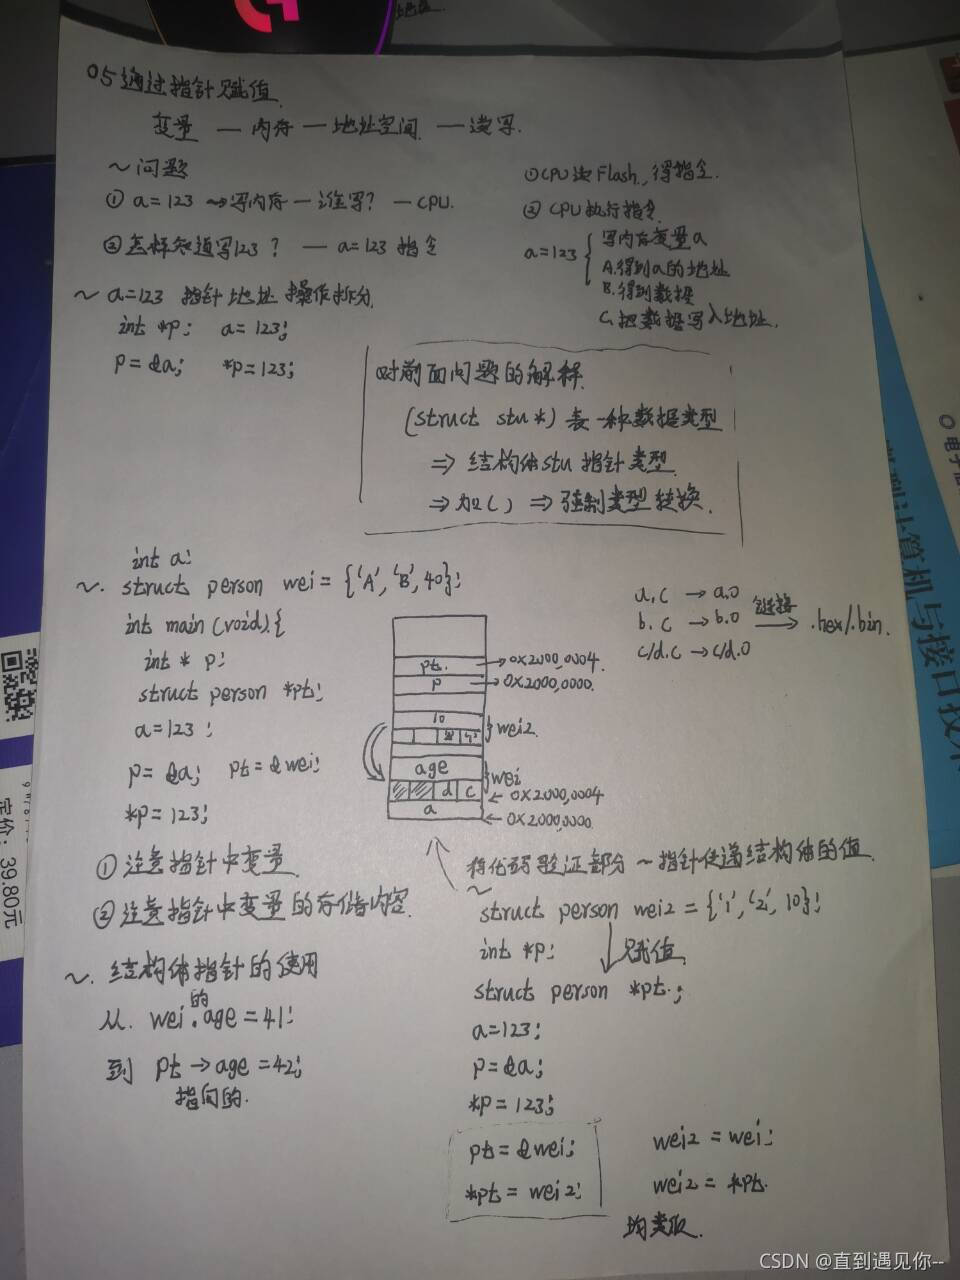 05通过指针赋值
变量 — 内存 — 地址空间 — 读写.
~问题
① a=123 → 写内存 — 谁写? — CPU.
②怎样知道写123? — a=123 指令
①CPU读Flash, 得指令.
② CPU执行指令
a=123 { 写内存变量a
A.得到a的地址
B.得到数据
C.把数据写入地址.
~ a=123 指针地址 操作拆分.
int *p; a=123;
p=&a; *p=123;
对前面问题的解释.
(struct stu*) 表一种数据类型
⇒ 结构体stu指针类型
⇒ 加( ) ⇒ 强制类型转换.
int a;
~. struct person wei = {'A','B',40};
int main(void){
int * p;
struct person *pt;
a=123;
p=&a; pt=&wei;
*p=123;
a.c → a.o
b.c → b.o 链接 → .hex/.bin.
c/d.c → c/d.o
pt. → 0x2000,0004.
p → 0x2000,0000.
10
wei2.
age
wei
d c ← 0x2000,0004
a ← 0x2000,0000
①注意指针中变量
②注意指针中变量的存储内容.
~. 结构体指针的使用
的
从. wei.age=41;
到 pt→age=42;
指向的.
将代码验证部分 ~指针传递结构体的值.
~
struct person wei2={'1','2',10};
int *p; 赋值
struct person *pt.;
a=123;
p=&a;
*p=123;
pt=&wei;
*pt=wei2;
wei2=wei;
wei2=*pt.
均类似.
微型计算机与接口技术
定价: 39.80元
CSDN @直到遇见你--